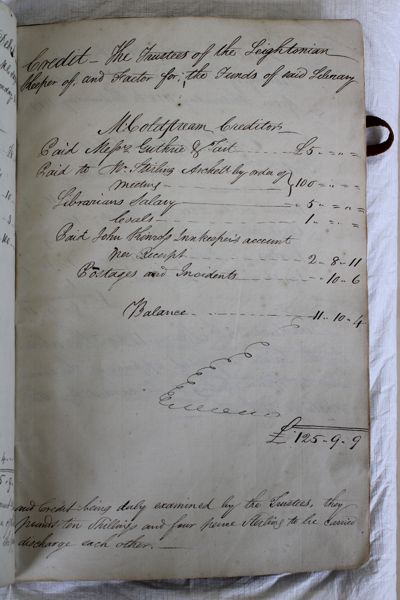 Credit – The Trustees of the Leightonian
Keeper of, and Factor for, the Funds of said Library
M Coldstream Creditors
Paid Messrs Guthrie & Tait £5 „ „ „ „
Paid to Wm Stirling Architect by order of
meeting 100 „ „ „ „
Librarians Salary „ 5 „ „ „
Coals 1 „ „ „
Paid John Kinross Innkeeper's account
per Receipt 2 „ 8 „ 11
Postages and Incidents „ 10 „ 6
Balance 11 „ 10 „ 4
£ 125 „ 9 „ 9
and Credit being duly examined by the Trustees, they
pounds ten Shillings and four pence Sterling to be carried
discharge each other. —